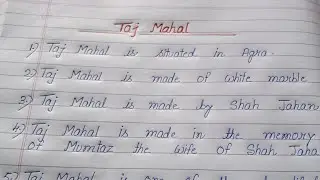 Taj Mahal
1) Taj Mahal is sitated in Agra.
2) Taj Mahal is made of white marble
3) Taj Mahal is made by Shah Jahan
4) Taj Mahal is made in the memory
of Mumtaz the wife of Shah Jaha
5) Taj Mahal is one of the